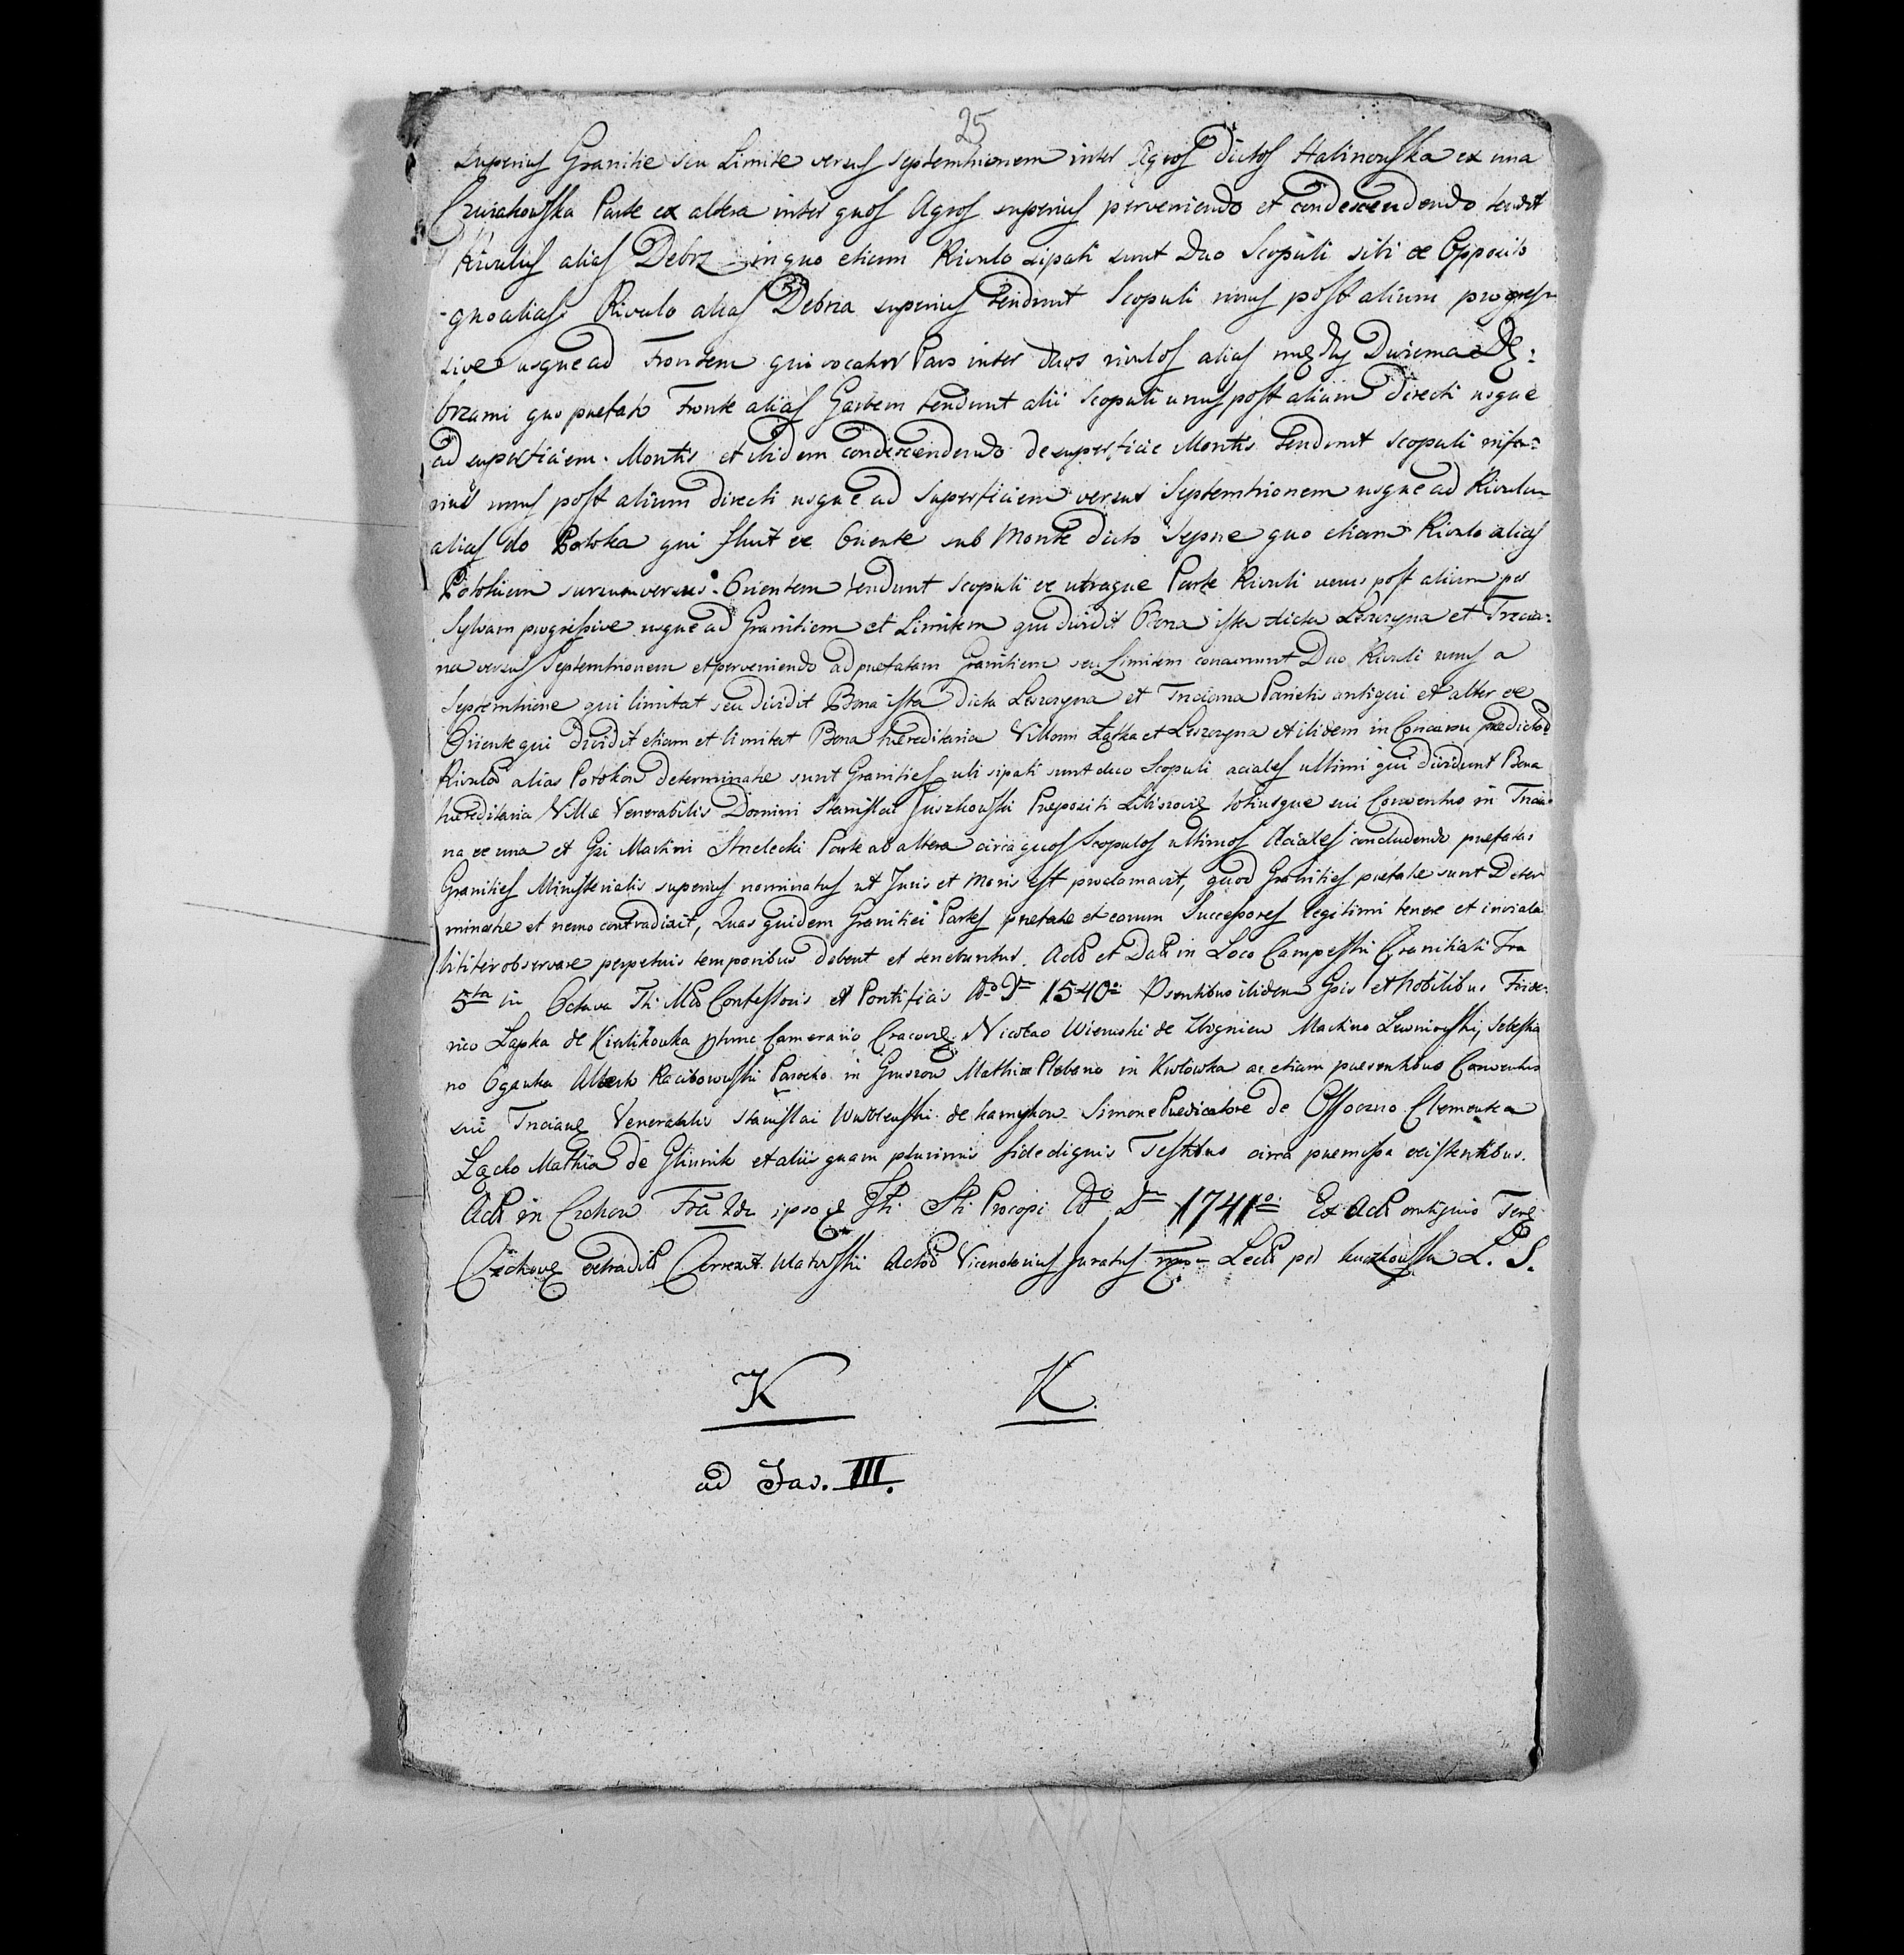 25
superius Granitie seu Limite versus septemtrionem inter Agros dictos Halinowska ex una
Parte ex altera inter quos Agros superius perveniendo et condescendendo tendit
Rivulus alias Debrz in quo etiam Rivulo sipati sunt Duo Scopuli sibi ex Opposito
quo alias Rivulo alias Debria superius tendunt Scopuli unus post alium progres-
sive usque ad Frontem qui vocatur Pars inter duos rivulos alias między Dwiema Dę:
brzami quo prefato Fronte alias Garbem tendunt alii scopuli unus post alium directi usque
ad superficiem Montis et ibidem condescendendo de superficie Montis tendunt scopuli infe-
rius unus post alium directi usque ad superficiem versus Septemtrionem usque ad Rivulum
alias do Potoka qui fluit ex Oriente sub Monte dicto Sepne quo etiam Rivulo alias
Potokiem sursum versus Orientem tendunt scopuli ex utraque Parte Rivuli unus post alium per
Sylvam progressive usque ad Granitiem et Limitem qui dividit Bona ista dicta Leszczyna et Trzcia:
na versus Septemtrionem et perveniendo ad prefatam Granitiem seu Limitem concurrunt Duo Rivuli unus a
Septemtrione qui limitat seu dividit Bona ista dicta Leszczyna et Trzciana Parietis antiqui et alter ex
Oriente qui dividit etiam et limitat Bona hereditaria Villarum Łąkta et Leszczyna et ibidem in Concursu predictor
Rivulor alias Potokow determinate sunt Granities ubi sipati sunt duo Scopuli aciales ultimi qui dividunt Bona
hereditaria Ville Venerabilis Domini Stanislai Prepositi totiusque sui Conventus in Trzcia-
na ex una et Gsi Martini Strzelecki Parte ab altera circa quos Scopulos ultimos Aciales concludendo prefatas
Granities Ministerialis superius nominatus ut Juris et Moris est proclamavit, quod Granities prefate sunt Deter
minate et nemo contradixit, Quas quidem Granitiei Partes prefate et eorum Successores legitimi tenere et inviola
biliter observare perpetuis temporibus debent et tenebuntur. Act et Dat in Loco Campestri Granitiali Fra
5ta in Octava Confessoris et Pontificis Ao Dm 1540o Psentibus ibidem Gsis et Nobilibus Fride-
rico Lapka de ptunc Camerario Cracovię Nicolao Wieruski de Zbigniew Martino Lewniowski, Sebestia
no Ogarka Alberto Raciborowski Parocho in Gruszow Mathia Plebano in Krolowka ac etiam presentibus Conventus
sui Trzcianę Venerabilis Stanislai de Kamykow Simone Predicatore de Clemente a
Łącko Mathia de Glinnik et aliis quam plurimis fide dignis Testibus circa premissa existentibus.
Act in Czchow Fra 2da ipso Sti Procopi Ao Dm 1741o Ex Act antiquis Terę
Czchovę extradit Correxit Actor Vicenotarius Juratus mpo Lect per L. S.
K K.
ad Fas. III.